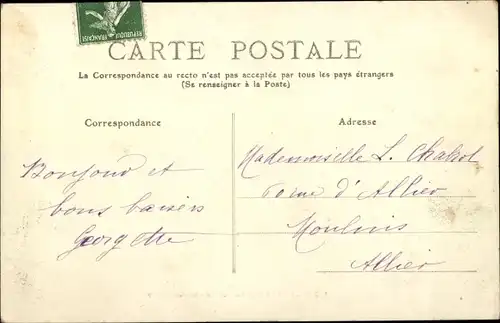 REPUBLIQUE FRANÇAISE
CARTE POSTALE
La Correspondance au recto n'est pas acceptée par tous les pays étrangers
(Se renseigner à la Poste)
Correspondance
Adresse
Bonjour et
bons baisers
Georgette
Mademoiselle L. Chabrol
d'Allier
Moulins
Allier